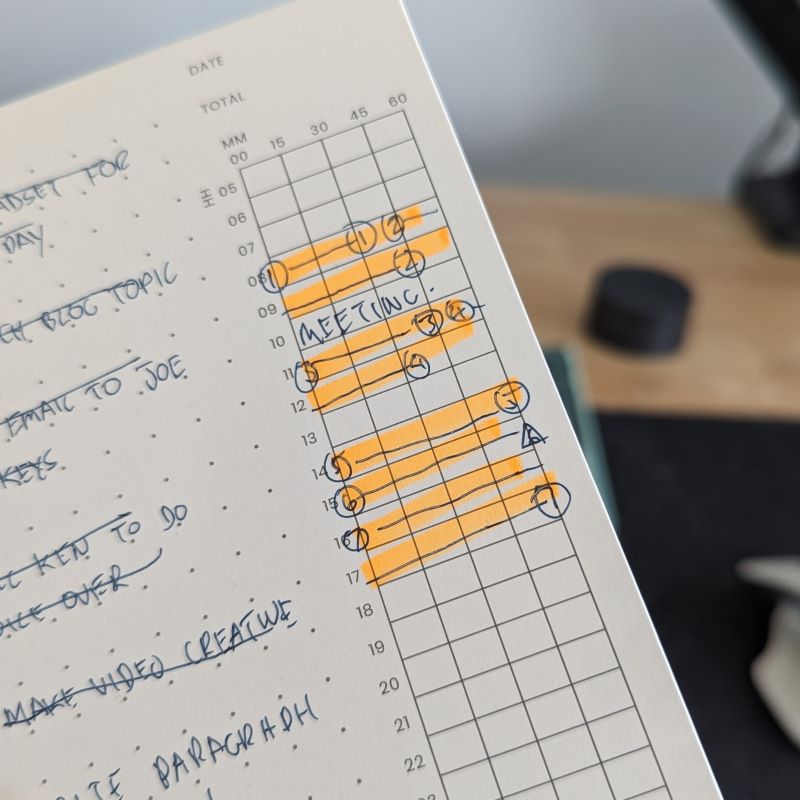 DATE
TOTAL
MM
00 15 30 45 60
HH
05
06
07
1 2
08 1
2
09
MEETING.
10
3 4
11 3
4
12
13
5
14 5
6
15 6
16 7
7
17
18
19
20
21
22
FOR
DAY
BLOG TOPIC
EMAIL TO JOE
KEYS.
KEN TO DO
OVER
MAKE VIDEO CREATIVE
PARAGRAPH